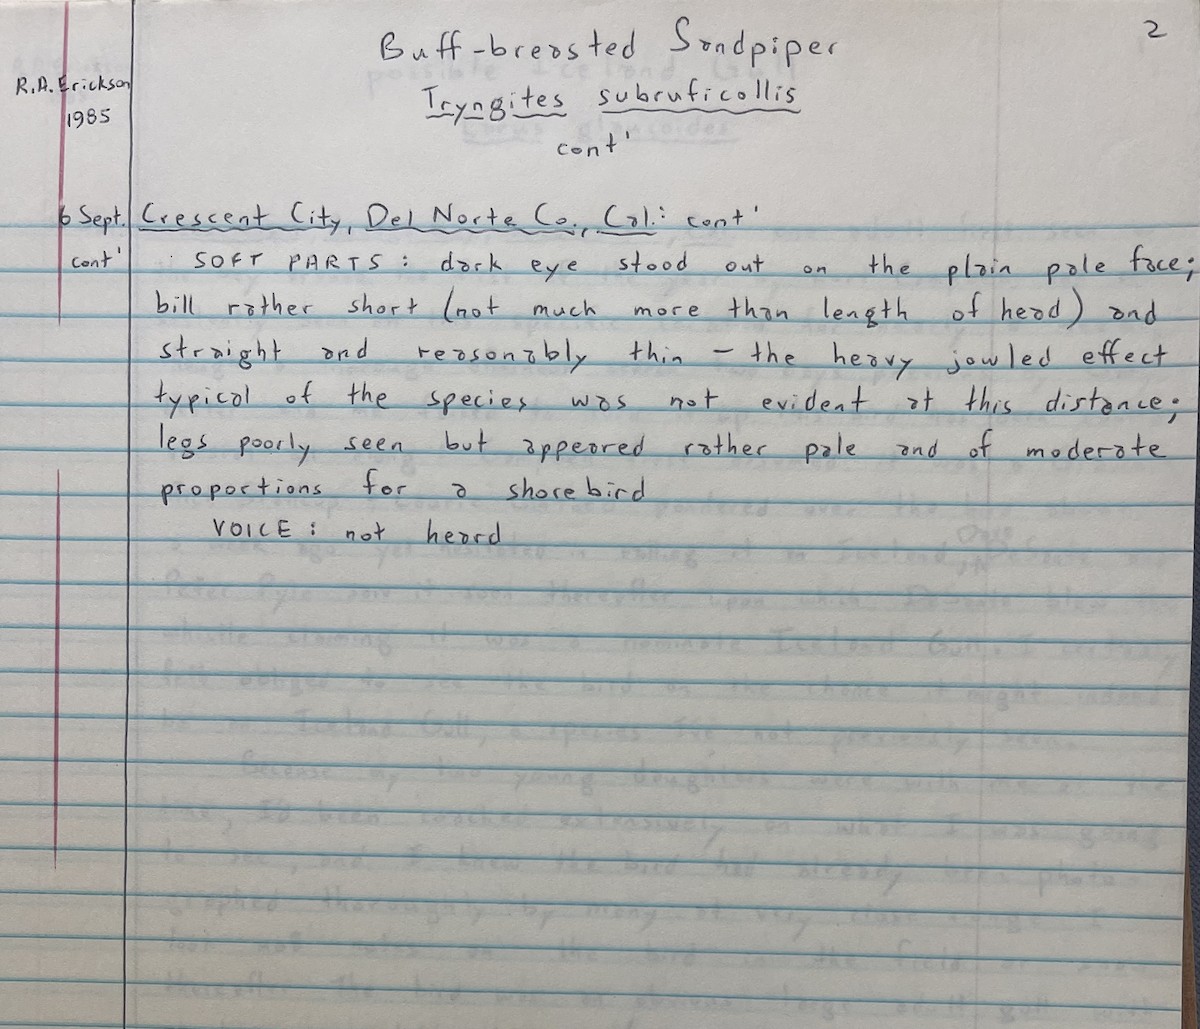 2
Buff-breasted Sandpiper
R.A. Erickson
Tryngites subruficollis
1985
cont'
6 Sept. Crescent City, Del Norte Co., Cal.: cont'
cont' SOFT PARTS: dark eye stood out on the plain pale face;
bill rather short (not much more than length of head) and
straight and reasonably thin – the heavy jowled effect
typical of the species was not evident at this distance;
legs poorly seen but appeared rather pale and of moderate
proportions for a shorebird
VOICE: not heard